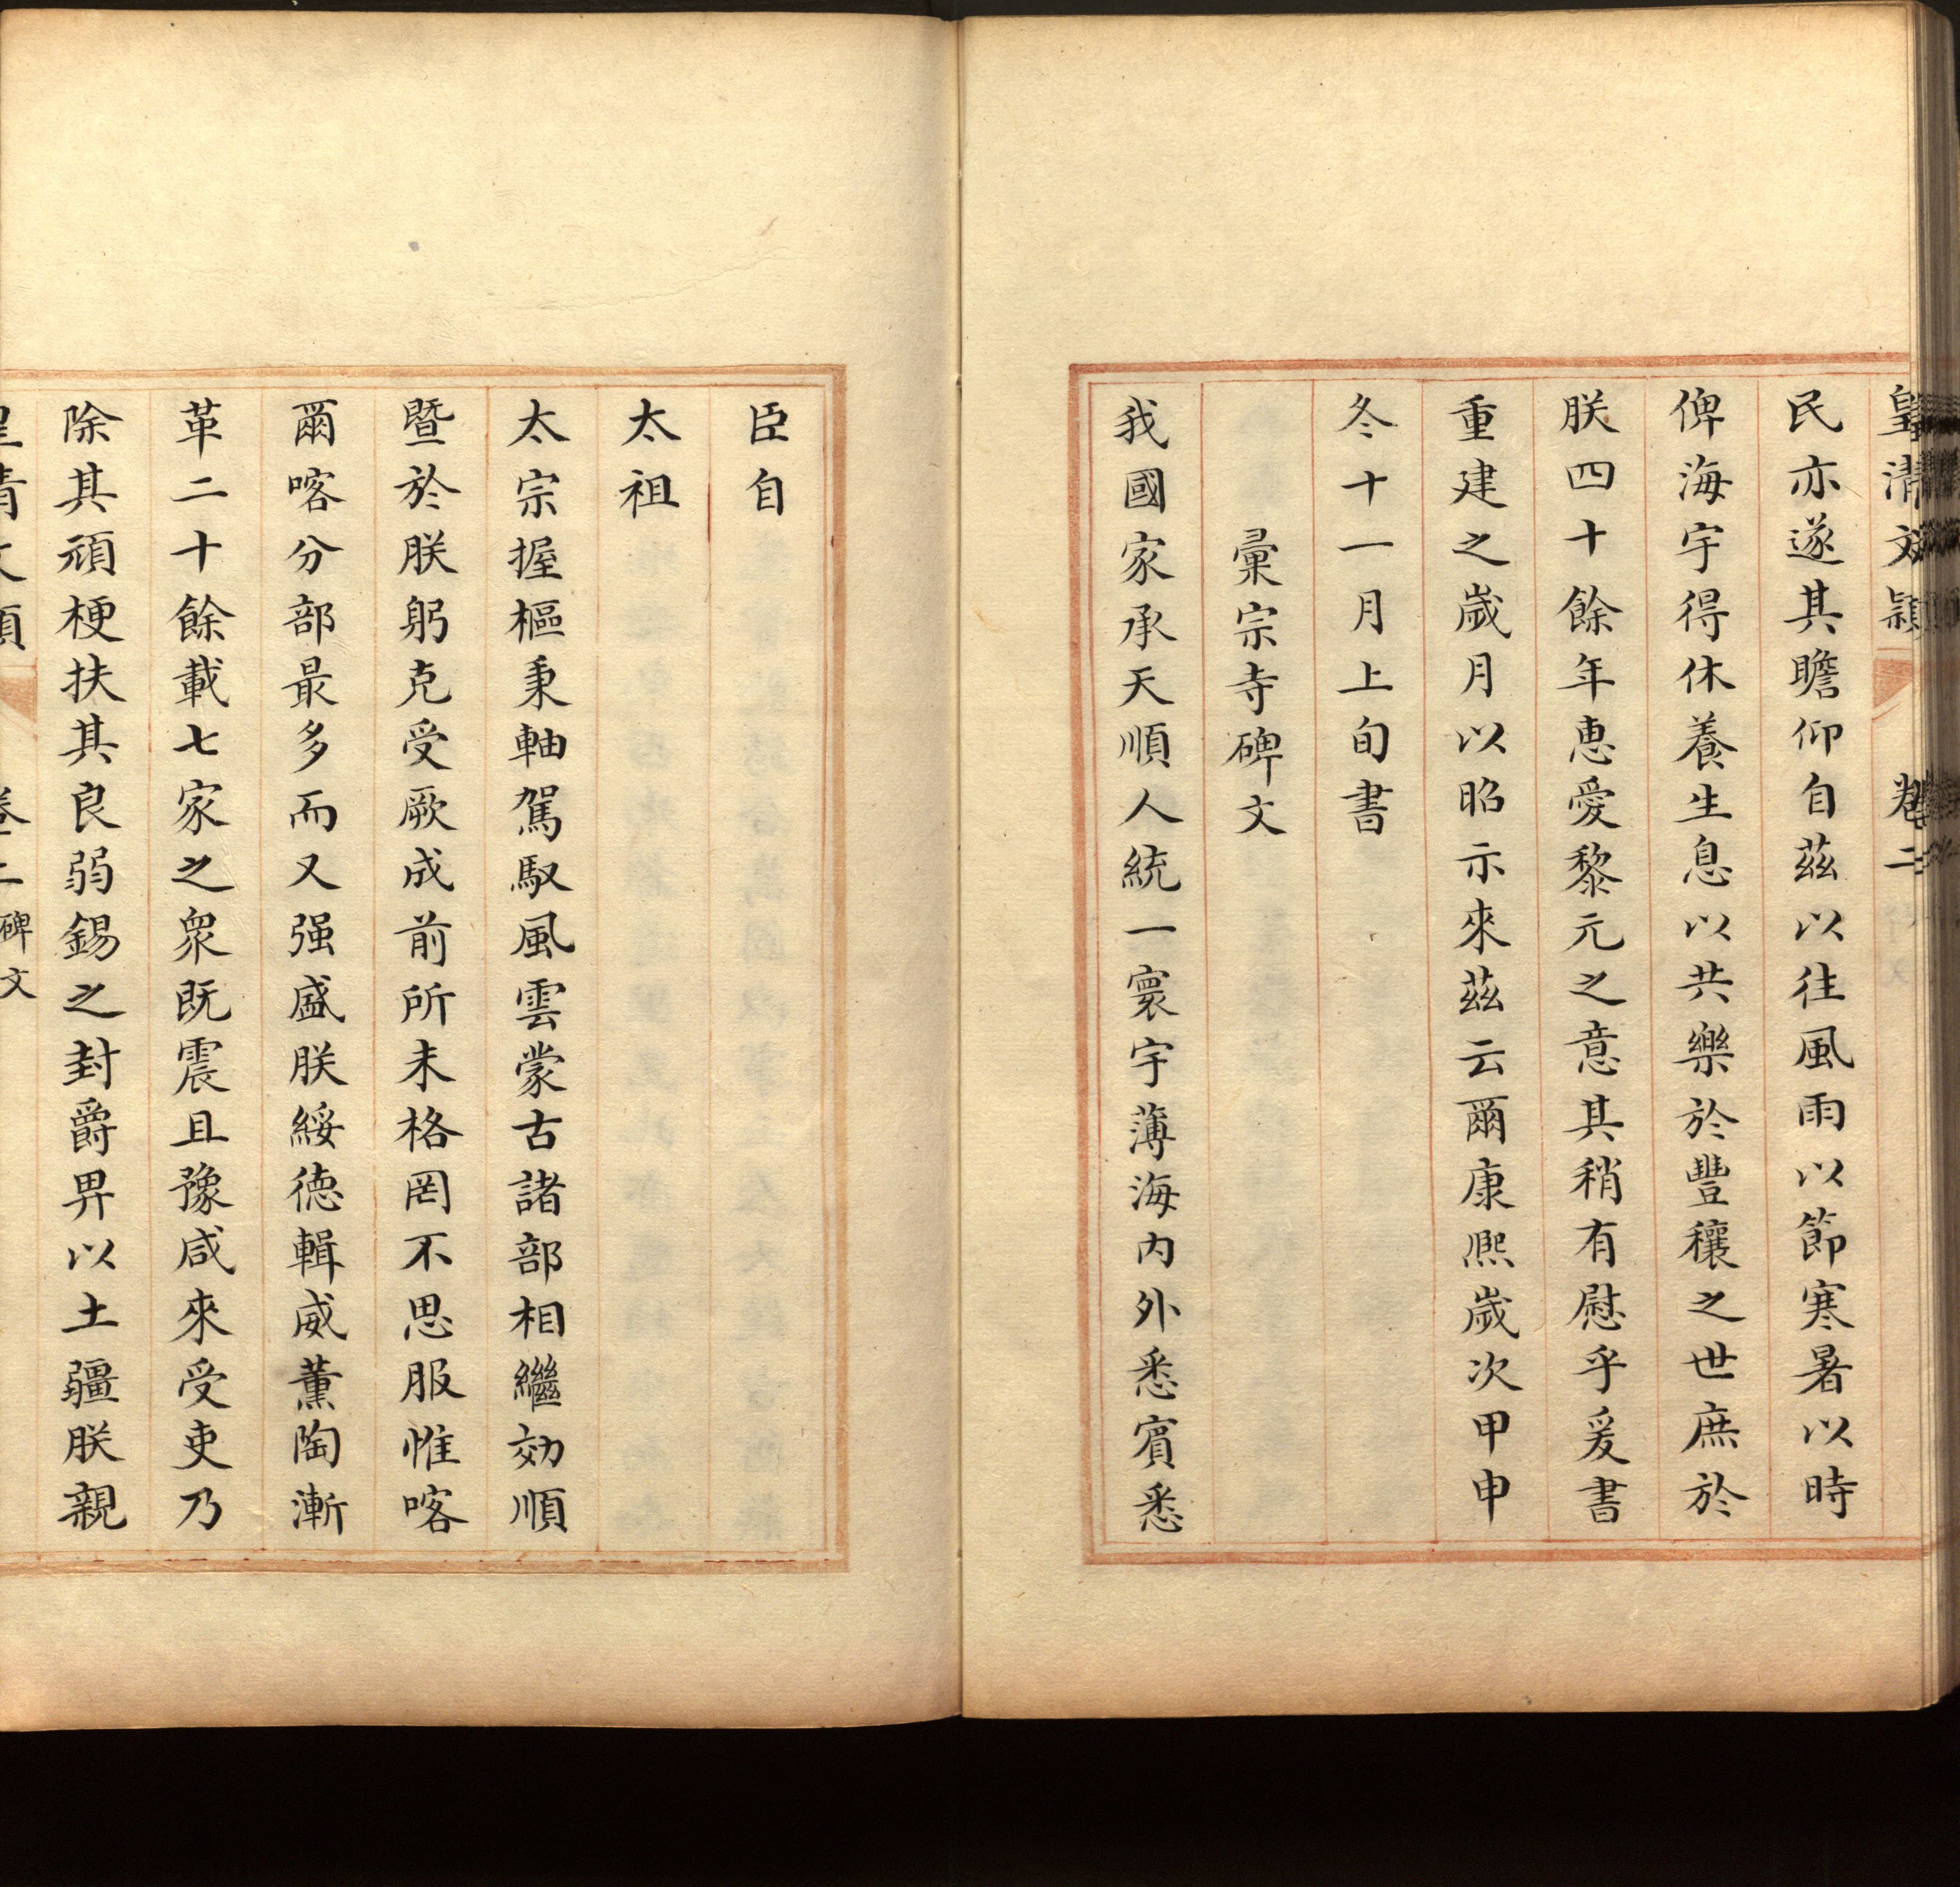 皇清文穎 卷二
民亦遂其瞻仰自茲以往風雨以節寒暑以時
俾海宇得休養生息以共樂於豐穰之世庶於
朕四十餘年惠愛黎元之意其稍有慰乎爰書
重建之歲月以昭示來茲云爾康熙歲次甲申
冬十一月上旬書
彙宗寺碑文
我國家承天順人統一寰宇薄海內外悉賓悉
臣自
太祖
太宗握樞秉軸駕馭風雲蒙古諸部相繼効順
暨於朕躬克受厥成前所未格罔不思服惟喀
爾喀分部最多而又强盛朕綏德輯威薰陶漸
革二十餘載七家之衆既震且豫咸來受吏乃
除其頑梗扶其良弱錫之封爵畀以土疆朕親
皇清文穎 卷二 碑文